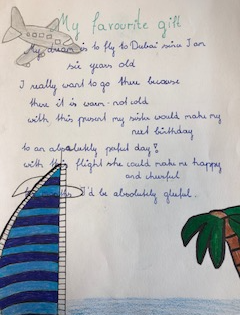 My favourite gift
My dream is to fly to Dubai since I am
six years old
I really want to go there because
there it is warm - not cold
with this present my sister would make my
next birthday
to an absolutely perfect day!
with this flight she could make me happy
and cheerful
I'd be absolutely gleeful.